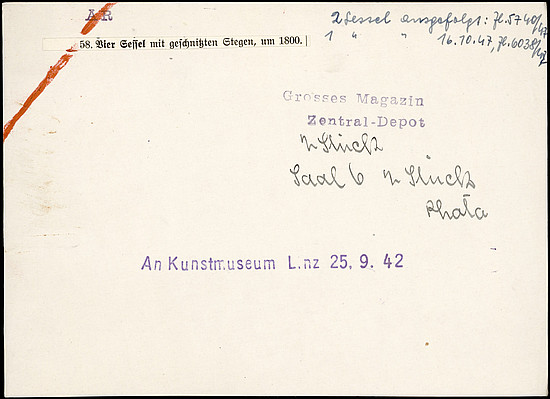 AR
2 Sessel ausgefolgt: Jl. 5740/47
1 " " 16.10.47, Jl. 6038/47
58. Vier Sessel mit geschnitzten Stegen, um 1800.
Grosses Magazin
Zentral-Depot
2 Stück
Saal 6 2 Stück
An Kunstmuseum L.nz 25. 9. 42